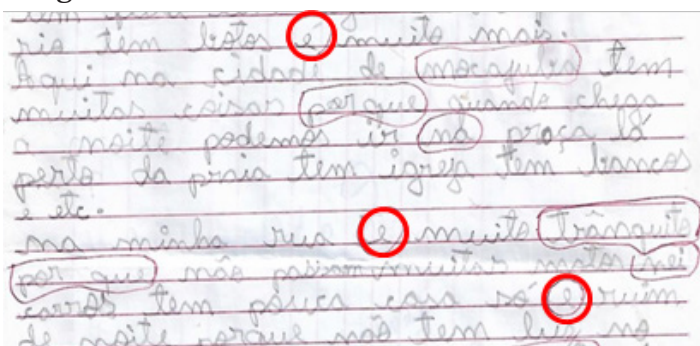 rio tem botos é muito mais.
Aqui na cidade de mocajuba tem
muitas coisas por que quando chega
a noite podemos ir na praça lá
perto da praia tem igreja tem bancos
e etc.
na minha rua e muito trânquito
por que não passam muitas motos nei
carros tem pouca casa só e ruim
de noite porque não tem luz no